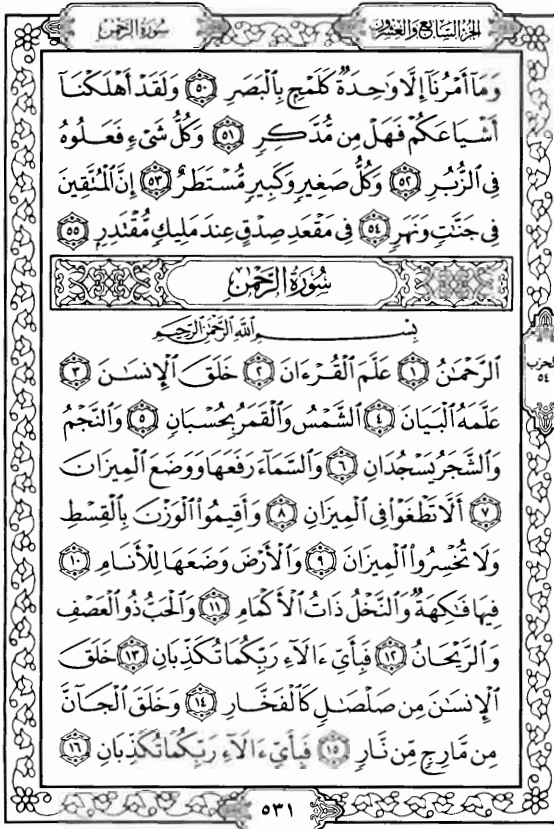 سُورَةُ الرَّحْمٰن
الجُزْءُ السَّابِعُ وَالعِشْرُون
وَمَآ أَمْرُنَآ إِلَّا وَٰحِدَةٌ كَلَمْحٍۭ بِٱلْبَصَرِ ٥٠ وَلَقَدْ أَهْلَكْنَآ
أَشْيَاعَكُمْ فَهَلْ مِن مُّدَّكِرٍ ٥١ وَكُلُّ شَىْءٍ فَعَلُوهُ
فِى ٱلزُّبُرِ ٥٢ وَكُلُّ صَغِيرٍ وَكَبِيرٍ مُّسْتَطَرٌ ٥٣ إِنَّ ٱلْمُتَّقِينَ
فِى جَنَّٰتٍ وَنَهَرٍ ٥٤ فِى مَقْعَدِ صِدْقٍ عِندَ مَلِيكٍ مُّقْتَدِرٍۭ ٥٥
سُورَةُ الرَّحْمٰن
بِسْمِ ٱللَّهِ ٱلرَّحْمَٰنِ ٱلرَّحِيمِ
الحزب
٥٤
ٱلرَّحْمَٰنُ ١ عَلَّمَ ٱلْقُرْءَانَ ٢ خَلَقَ ٱلْإِنسَٰنَ ٣
عَلَّمَهُ ٱلْبَيَانَ ٤ ٱلشَّمْسُ وَٱلْقَمَرُ بِحُسْبَانٍ ٥ وَٱلنَّجْمُ
وَٱلشَّجَرُ يَسْجُدَانِ ٦ وَٱلسَّمَآءَ رَفَعَهَا وَوَضَعَ ٱلْمِيزَانَ
٧ أَلَّا تَطْغَوْا۟ فِى ٱلْمِيزَانِ ٨ وَأَقِيمُوا۟ ٱلْوَزْنَ بِٱلْقِسْطِ
وَلَا تُخْسِرُوا۟ ٱلْمِيزَانَ ٩ وَٱلْأَرْضَ وَضَعَهَا لِلْأَنَامِ ١٠
فِيهَا فَٰكِهَةٌ وَٱلنَّخْلُ ذَاتُ ٱلْأَكْمَامِ ١١ وَٱلْحَبُّ ذُو ٱلْعَصْفِ
وَٱلرَّيْحَانُ ١٢ فَبِأَىِّ ءَالَآءِ رَبِّكُمَا تُكَذِّبَانِ ١٣ خَلَقَ
ٱلْإِنسَٰنَ مِن صَلْصَٰلٍ كَٱلْفَخَّارِ ١٤ وَخَلَقَ ٱلْجَآنَّ
مِن مَّارِجٍ مِّن نَّارٍ ١٥ فَبِأَىِّ ءَالَآءِ رَبِّكُمَا تُكَذِّبَانِ ١٦
٥٣١